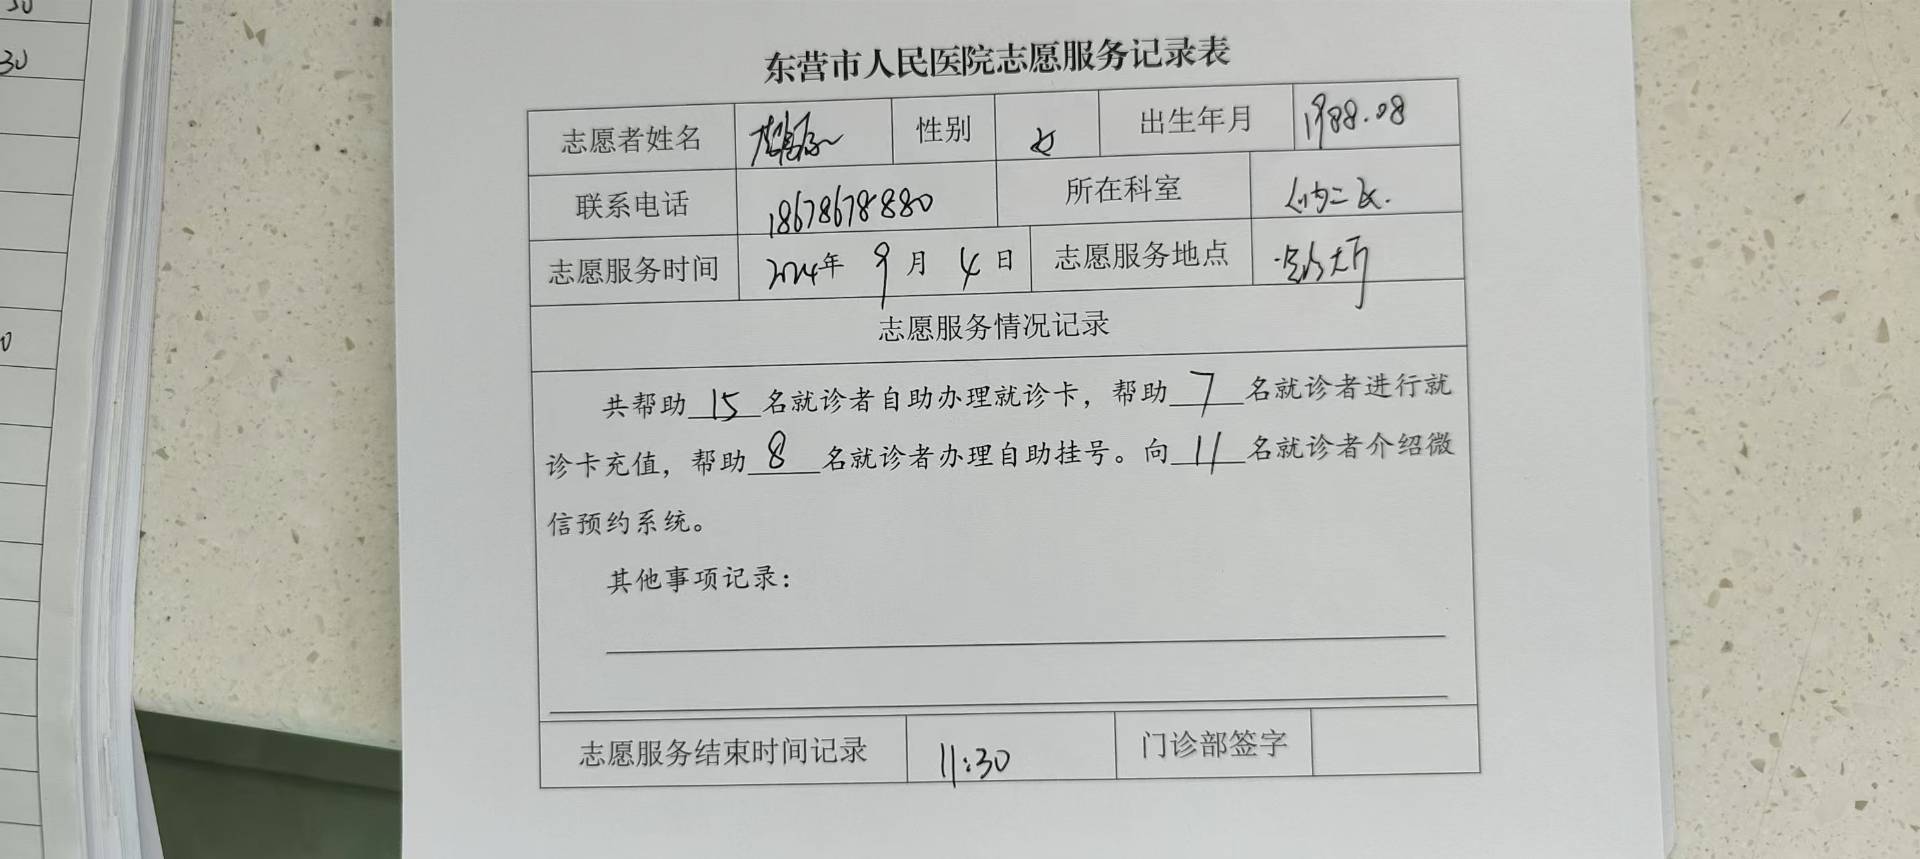 30
30
0
东营市人民医院志愿服务记录表
志愿者姓名 性别 女 出生年月 1988.08
联系电话 18678678880 所在科室 心内二区.
志愿服务时间 2024年 9月 4日 志愿服务地点 大厅
志愿服务情况记录
共帮助15名就诊者自助办理就诊卡，帮助7名就诊者进行就
诊卡充值，帮助8名就诊者办理自助挂号。向11名就诊者介绍微
信预约系统。
其他事项记录：
志愿服务结束时间记录 11:30 门诊部签字